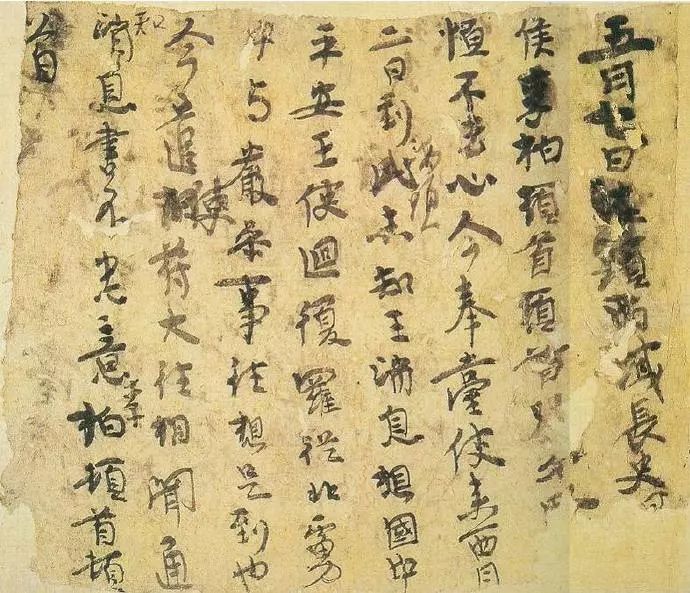 五月七日西域長史
侯李柏頓首頓首別
恒不去心今奉臺使來西月
二日到此海頭未知王消息想國中
平安王使迴復羅從北虜
中與嚴參事往想是到也
今遣使符大往相聞通
知消息書不悉意李柏頓首頓
首